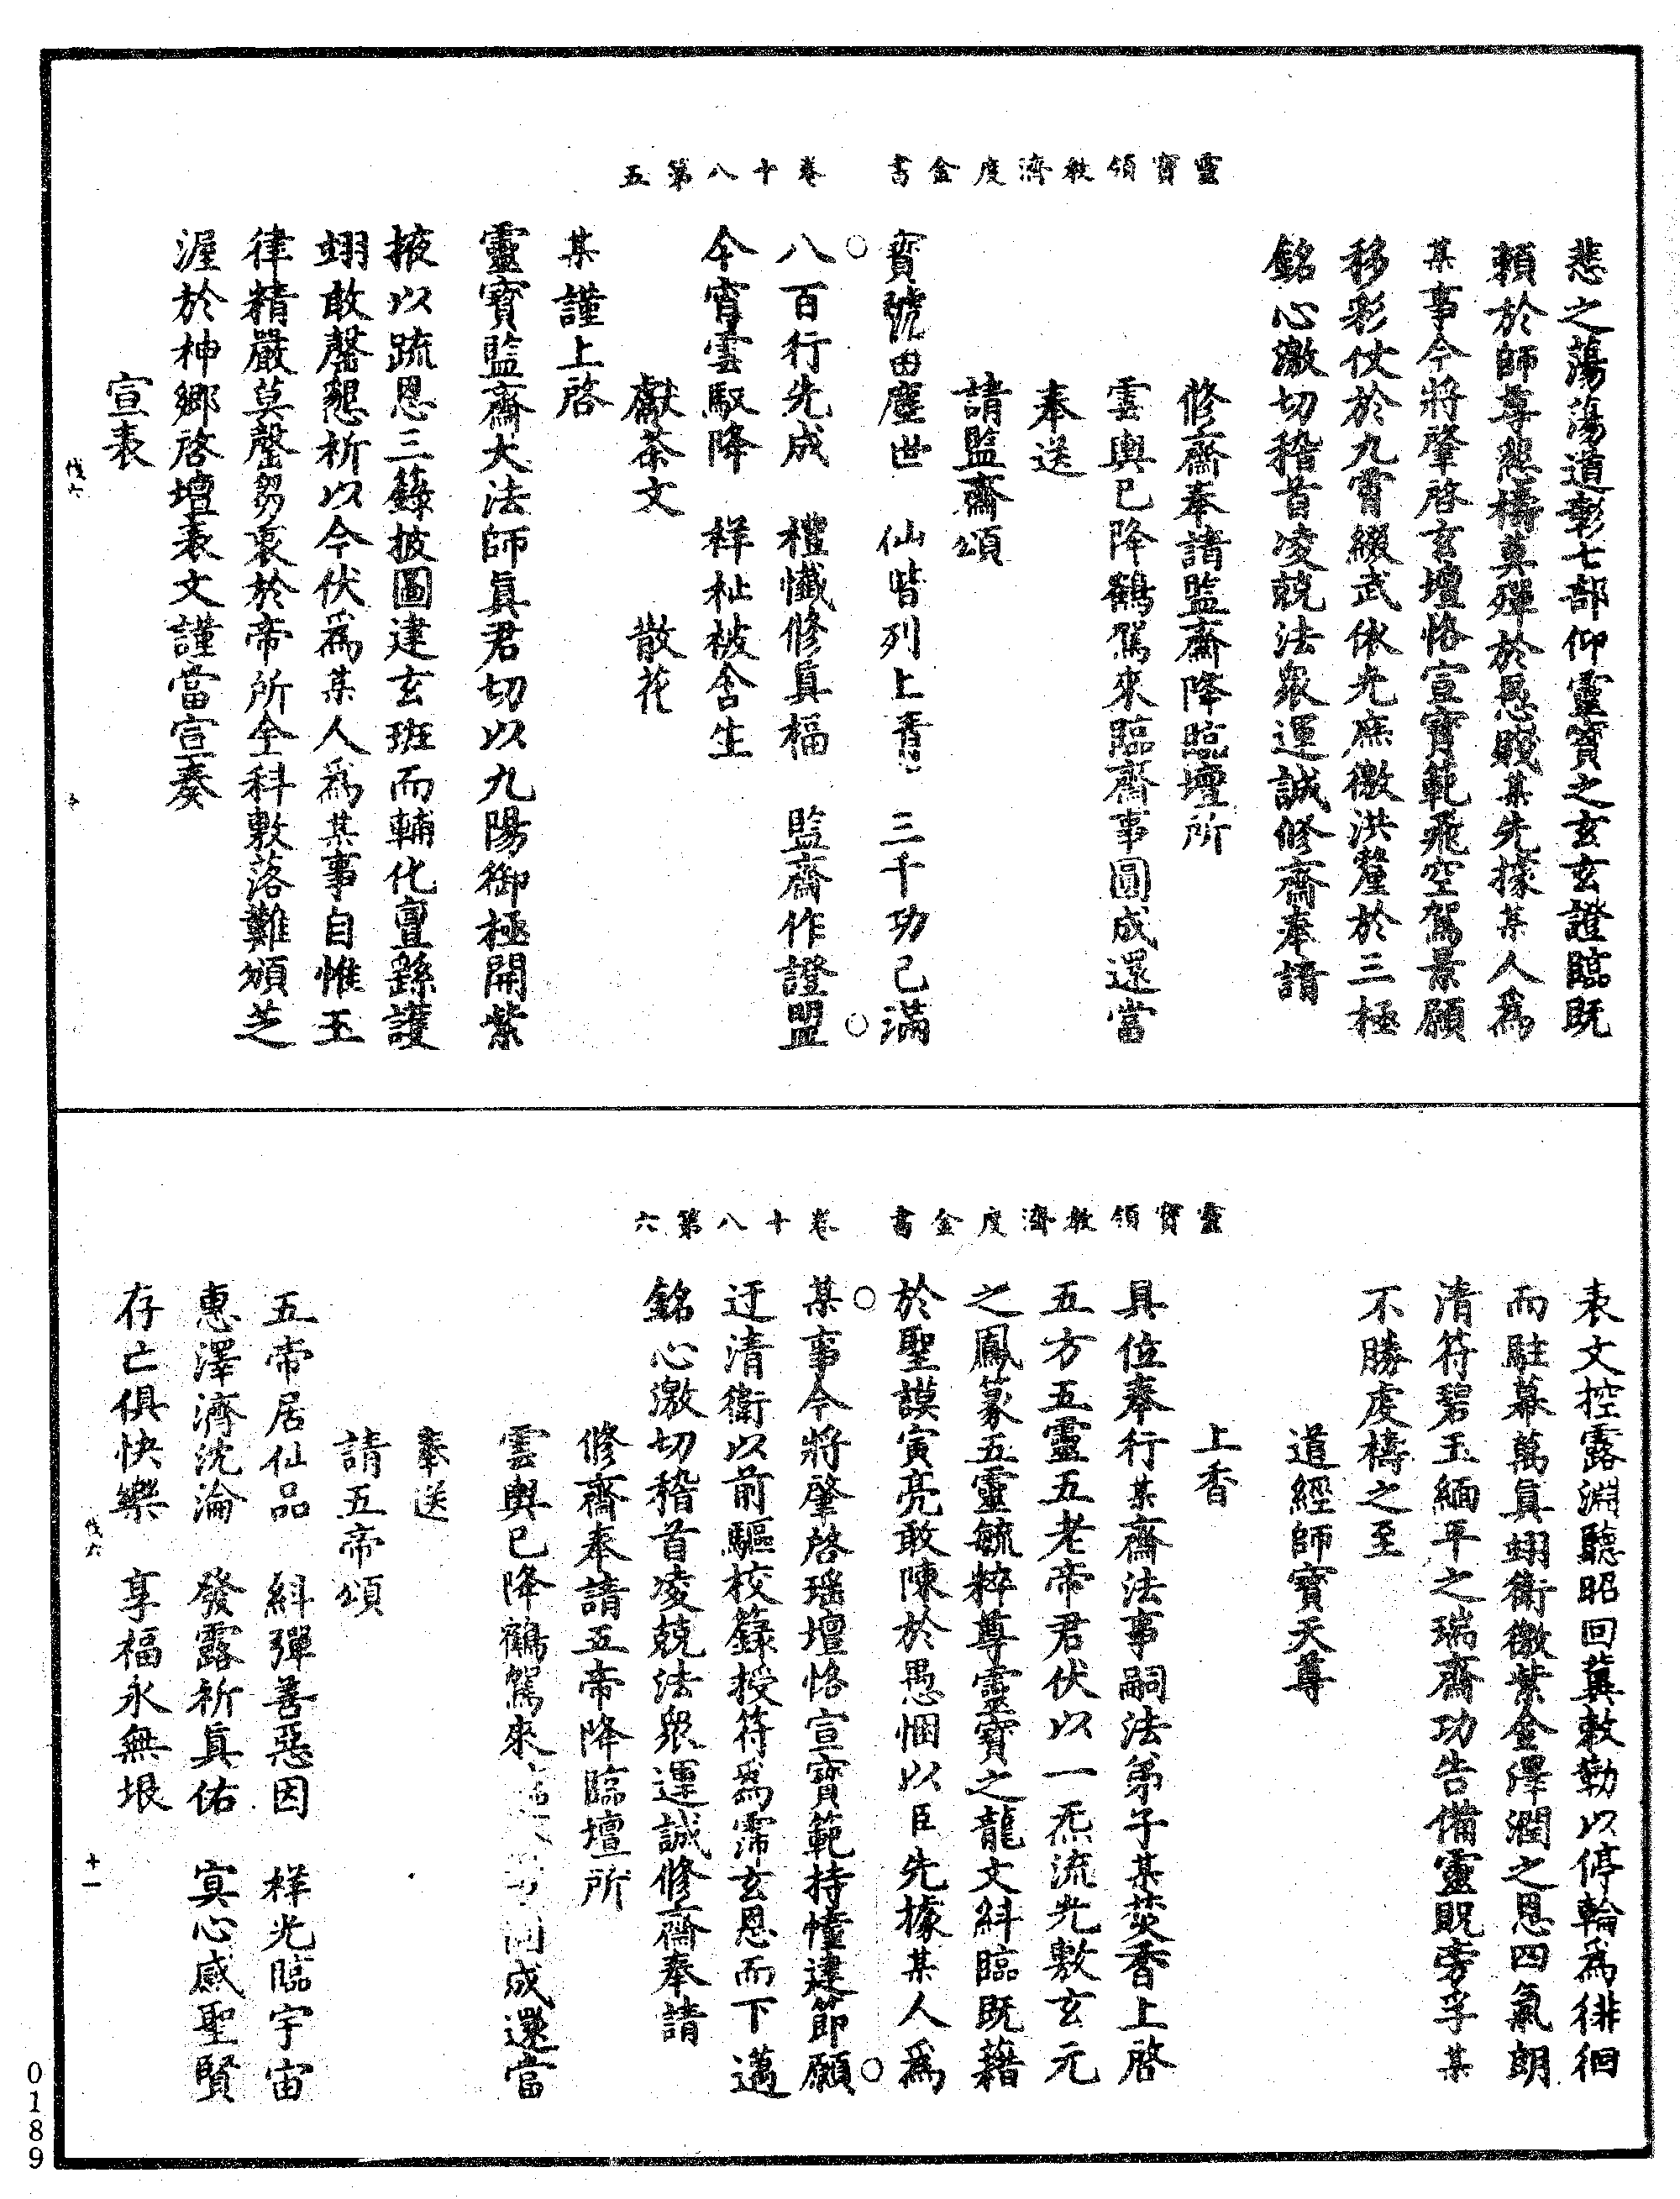 靈寶領教濟度金書　卷十八第五
悲之蕩蕩道彰七部仰靈寶之玄玄證臨既
賴於師尊懇禱莫殫於恩賤某先據某人為
某事今將肇啓玄壇恪宣寶範飛空駕景願
移彩仗於九霄綴武依光庶徼洪釐於三極
銘心激切稽首凌兢法衆運誠修齋奉請
修齋奉諸監齋降臨壇所
雲輿已降鶴駕來臨齋事圓成還當
奉送
請監齋頌
寶號田塵世　仙堦列上青　三千功已滿
八百行先成　禮懺修真福　監齋作證盟
今宵雲馭降　祥祉被含生
獻茶文　　散花
某謹上啓
靈寶監齋大法師眞君切以九陽御極開紫
掖以疏恩三籙披圖建玄班而輔化亶繇護
翊敢罄懇祈以今伏爲某人爲某事自惟玉
律精嚴莫罄芻衷於帝所全科敷落難頒芝
渥於神鄉啓壇表文謹當宣奏
宣表
伐六
十
靈寶領教濟度金書　卷十八第六
表文控露淵聽昭回冀敕勒以停輪爲徘徊
而駐幕萬眞翊衛徼紫金澤潤之恩四氣朗
清符碧玉緬平之瑞齋功告備靈貺旁孚某
不勝虔禱之至
道經師寶天尊
上香
具位奉行某齋法事嗣法弟子某焚香上啓
五方五靈五老帝君伏以一炁流光敷玄元
之鳳篆五靈毓粹尊靈寶之龍文紏臨既藉
於聖謨寅亮敢陳於愚悃以臣先據某人爲
某事今將肇啓瑤壇恪宣寶範持幢建節願
迂清衛以前驅校籙授符爲霈玄恩而下邁
銘心激切稽首凌兢法衆運誠修齋奉請
修齋奉請五帝降臨壇所
雲輿已降鶴駕來圓成還當
奉送
請五帝頌
五帝居仙品　紏彈善惡因　祥光臨宇宙
惠澤濟沈淪　發露祈眞佑　寘心感聖賢
存亡俱快樂　享福永無垠
伐六
十一
0189